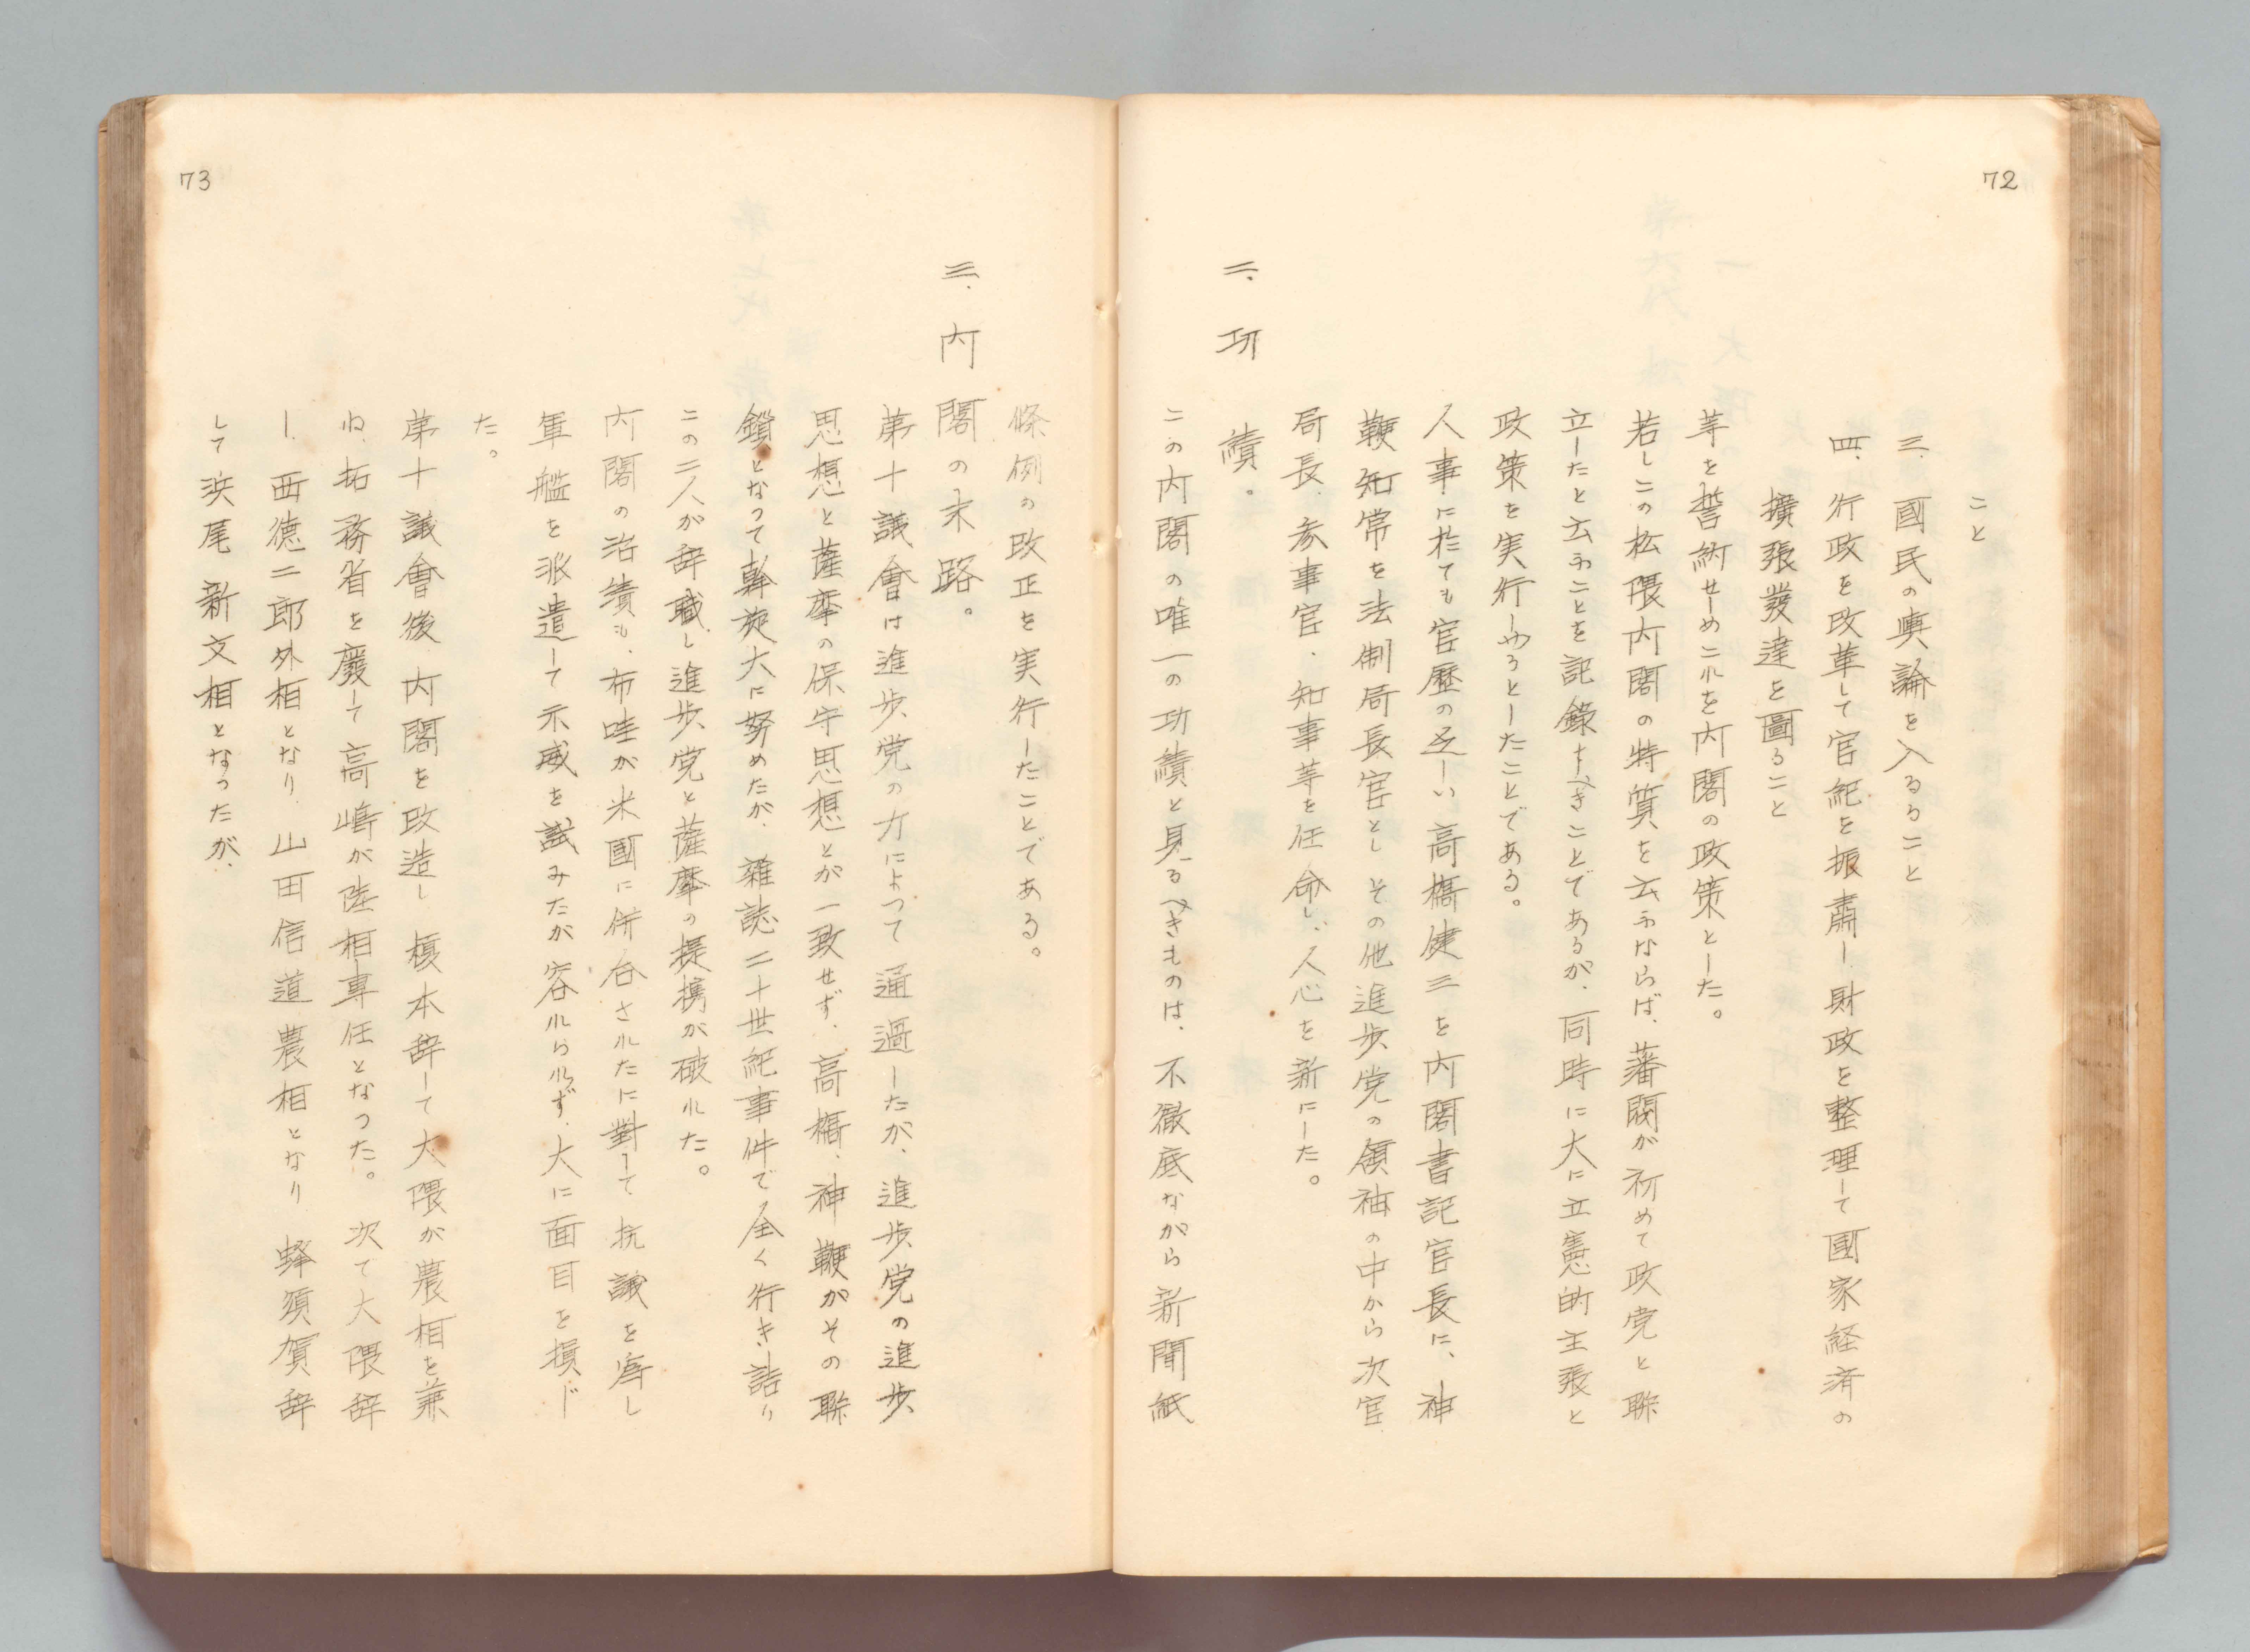 72
こと
三.國民の輿論を入るゝこと
四.行政を改革して官紀を振肅し財政を整理して國家経済の
擴張發達を圖ること
等を誓約せしめこれを内閣の政策とした。
若しこの松隈内閣の特質を云ふならば、藩閥が初めて政党と聯
立したと云ふことを記錄すべきことであるが、同時に大に立憲的主張と
政策を実行しやうとしたことである。
人事に於ても官歴の乏しい高橋健三を内閣書記官長に、神
鞭知常を法制局長官とし その他進歩党の領袖の中から次官
局長、参事官、知事等を任命し、人心を新にした。
二.功績。
この内閣の唯一の功績と見るべきものは、不徹底ながら新聞紙
73
條例の改正を実行したことである。
三.内閣の末路。
第十議會は進歩党の力によつて通過したが、進歩党の進歩
思想と薩摩の保守思想とが一致せず、高橋、神鞭がその聯
鎖となつて斡旋大に努めたが、雑誌二十世紀事件で全く行き詰り
この二人が辞職し進歩党と薩摩の提携が破れた。
内閣の治績も、布哇が米國に併合されたに對して抗議を寄し
軍艦を派遣して示威を試みたが容れられず、大に面目を損じ
た。
第十議會後 内閣を改造し 榎本辞して大隈が農相を兼
ね、拓務省を廢して高嶋が陸相専任となつた。次で大隈辞
し、西徳二郎外相となり 山田信道農相となり 蜂須賀辞
して浜尾新文相となつたが、